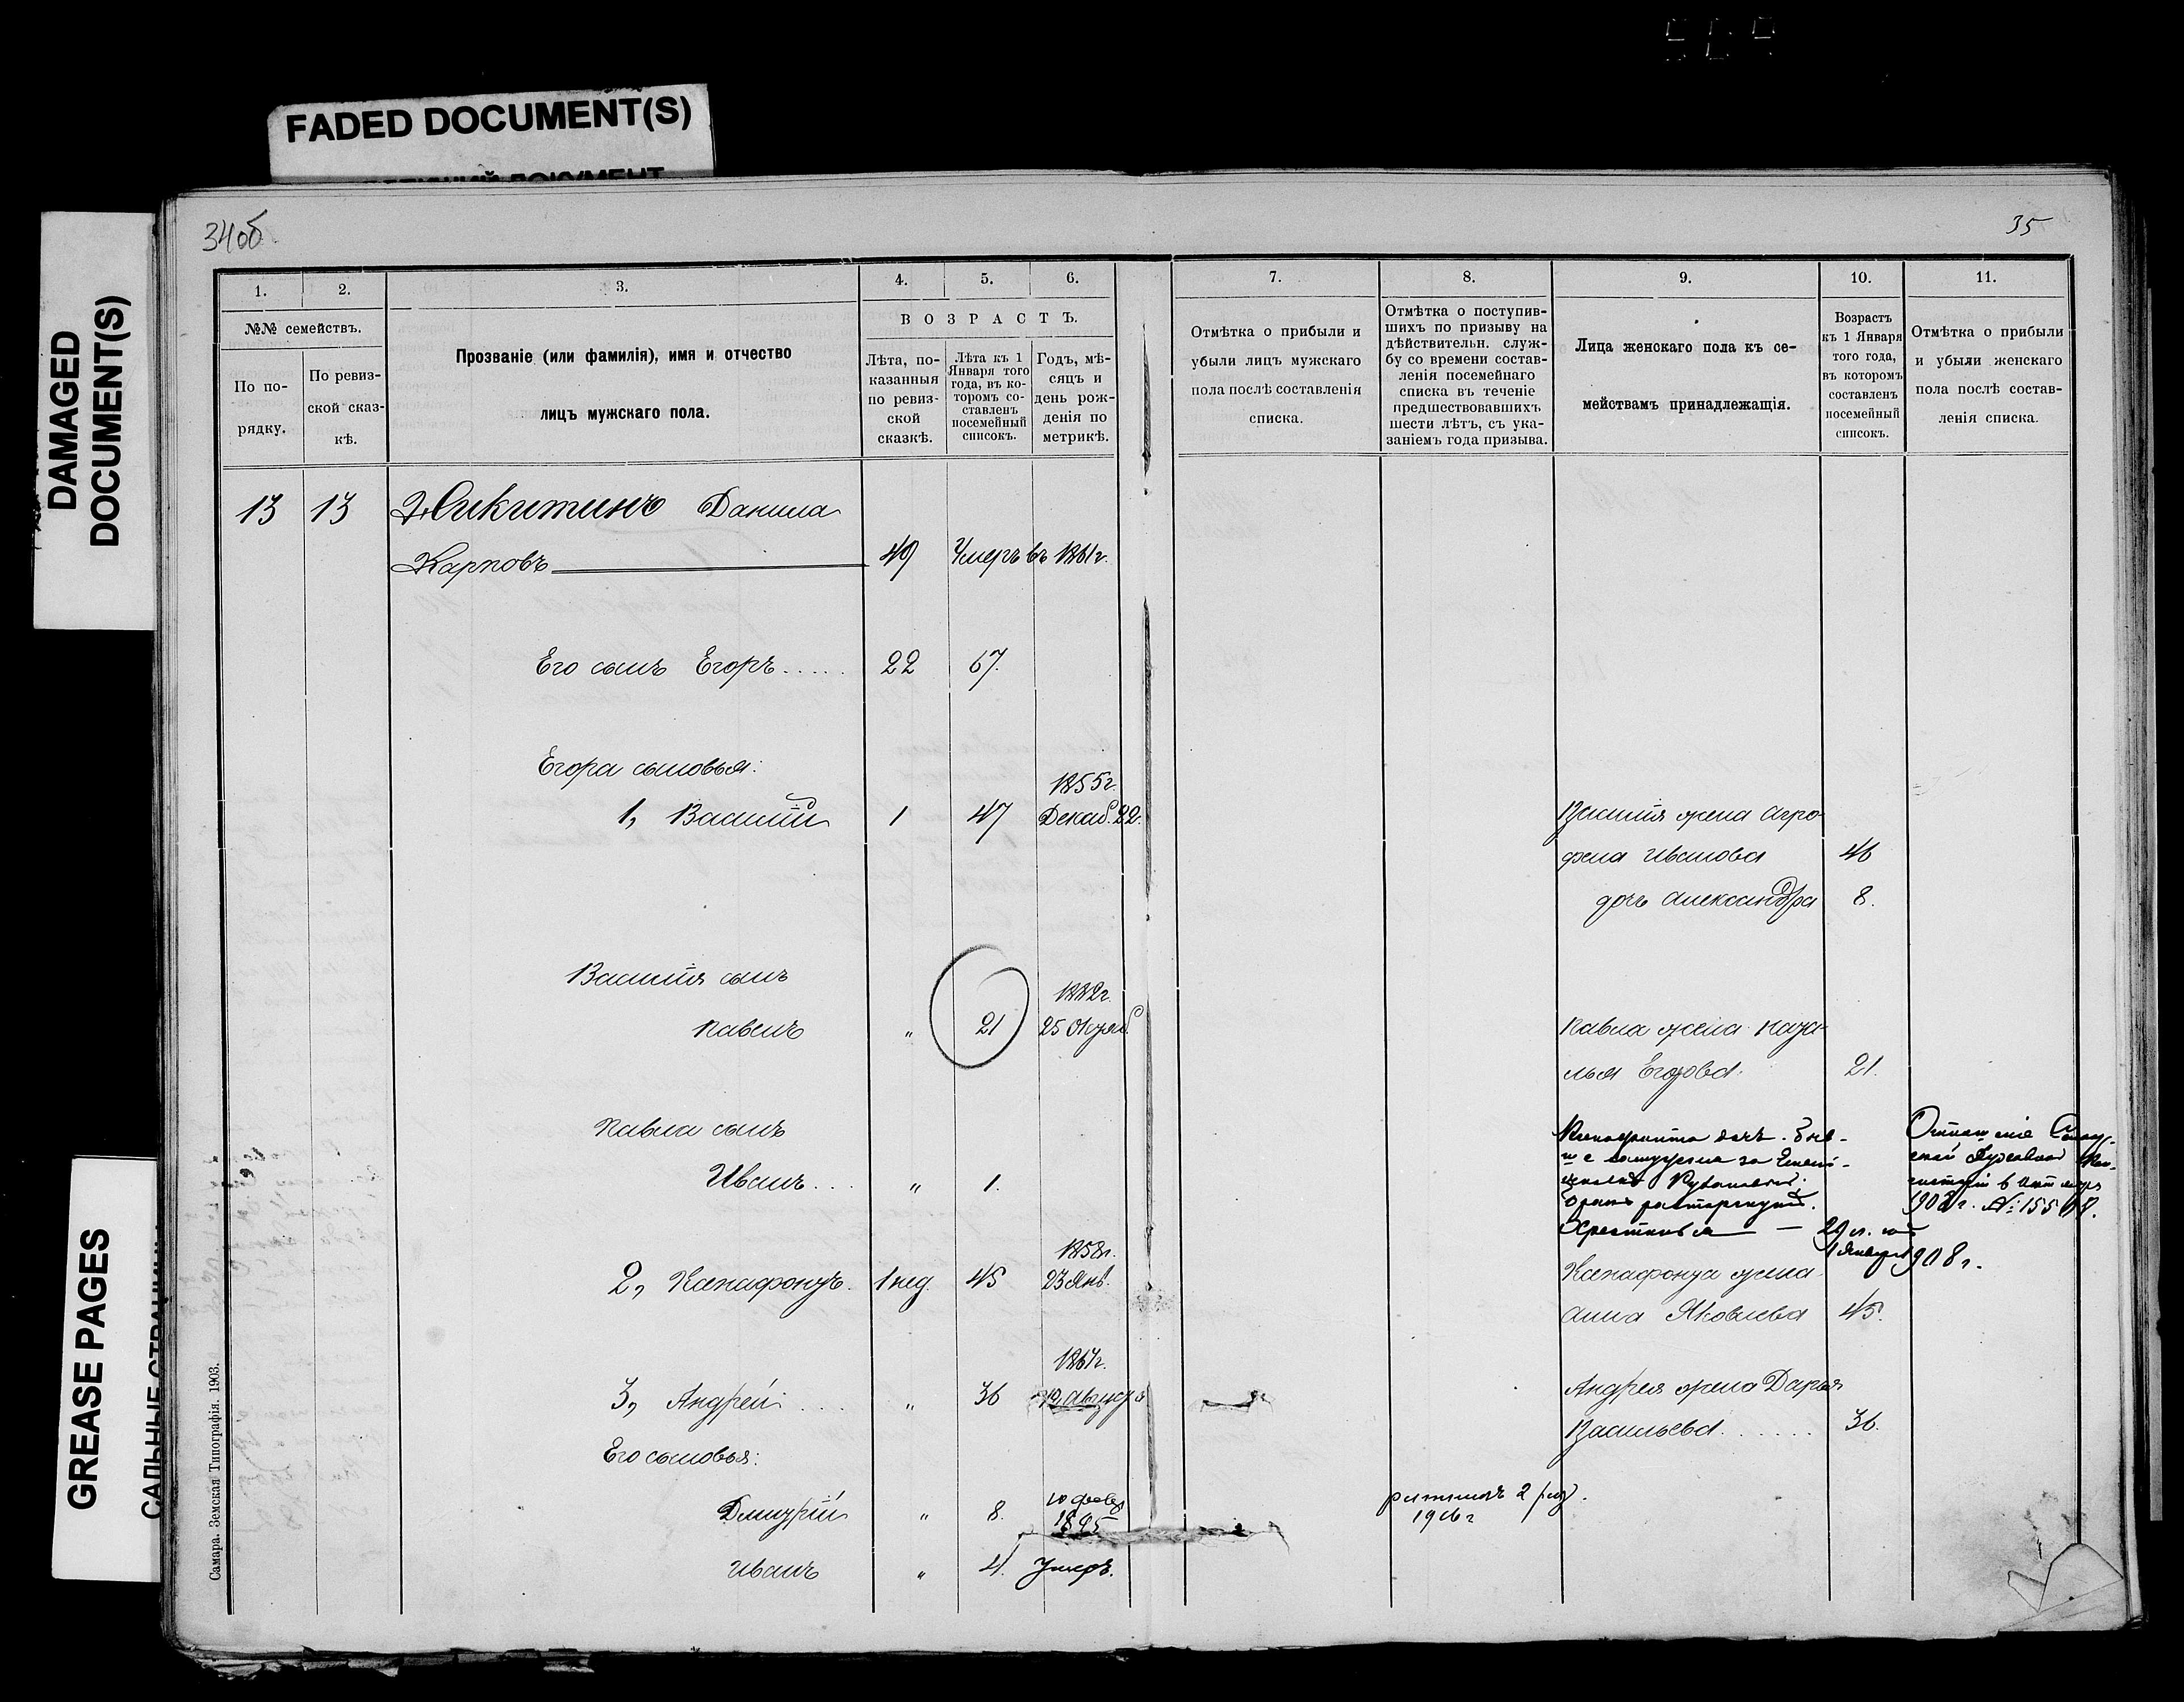 FADED DOCUMENT(S)
DAMAGED
DOCUMENT(S)
GREASE PAGES
34об
35
1.
2.
3.
4.
5.
6.
7.
8.
9.
10.
11.
№№ семействъ.
По по-
рядку.
По ревиз-
ской сказ-
кѣ.
Прозваніе (или фамилія), имя и отчество
лицъ мужскаго пола.
ВОЗРАСТЪ.
Лѣта, по-
казанныя
по ревиз-
ской
сказкѣ.
Лѣта къ 1
Января того
года, въ ко-
торомъ со-
ставленъ
посемейный
списокъ.
Годъ, мѣ-
сяцъ и
день рож-
денія по
метрикѣ.
Отмѣтка о прибыли и
убыли лицъ мужскаго
пола послѣ составленія
списка.
Отмѣтка о поступив-
шихъ по призыву на
дѣйствительн. служ-
бу со времени состав-
ленія посемейнаго
списка въ теченіе
предшествовавшихъ
шести лѣтъ, съ ука-
заніемъ года призыва.
Лица женскаго пола къ се-
мействамъ принадлежащія.
Возрастъ
къ 1 Января
того года,
въ которомъ
составленъ
посемейный
списокъ.
Отмѣтка о прибыли
и убыли женскаго
пола послѣ состав-
ленія списка.
13 13 Никитинъ Данила
Карповъ 49 Умеръ въ 1861г.
Его сынъ Егоръ..... 22 67.
Егора сыновья:
1855г.
1, Василій 1 47 Декаб. 22. Василія жена Агро-
фена Иванова 46
дочь Александра 8.
Василія сынъ
1882г.
Павелъ " 21 25 Октяб. Павла жена Ната-
лья Егорова. 21.
Павла сынъ
Иванъ... " 1.
бракъ расторгнутъ. 1908г. №
29 л. къ
1 Января 1908г.
1858г.
2, Ксенафонтъ. 1 нед. 45 23 Янв. Ксенафонта жена
Анна Яковлева 45.
1867г.
3, Андрей.... " 36 Августа Андрея жена Дарья
Васильева...... 36.
Его сыновья:
Дмитрій " 8. 10 февр. 1895 2 раз.
1906г
Иванъ " 4. Умеръ.
Самара. Земская Типографія. 1903.